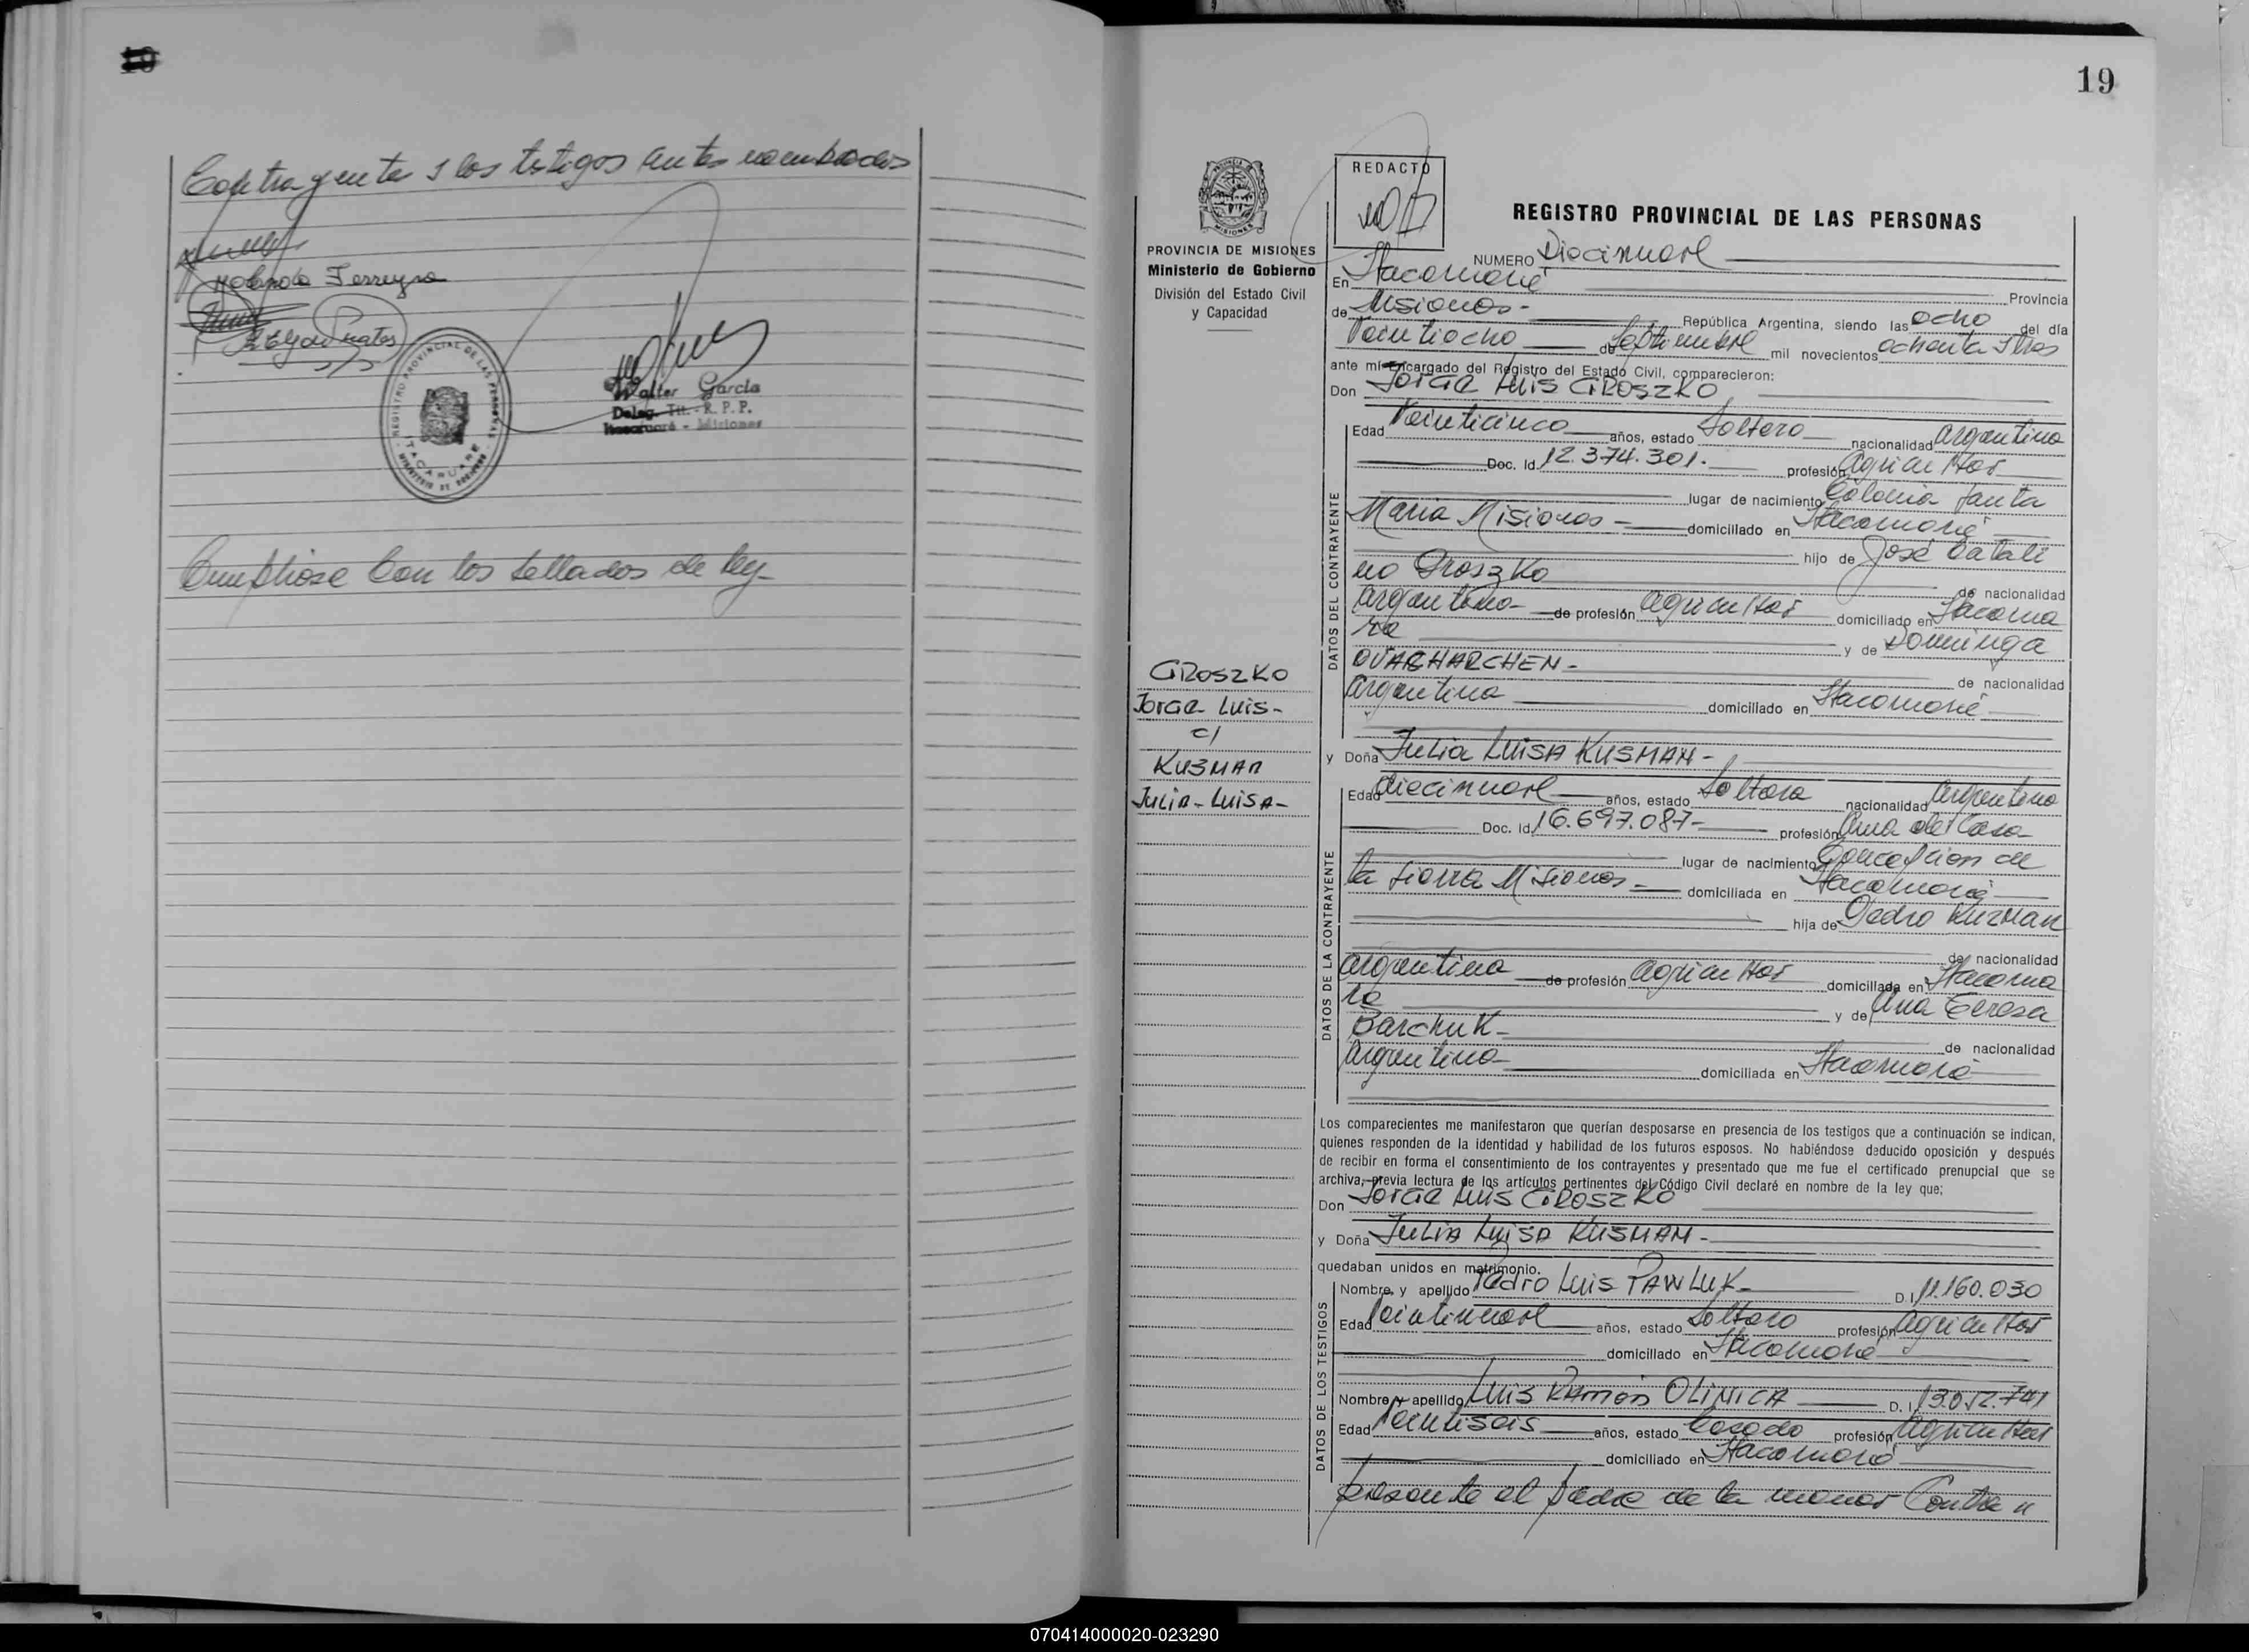 10
Contrayentes y los testigos antes nombrados
Rolando Ferreyra
REGISTRO PROVINCIAL DE LAS PERSONAS
ITACARUARE
Walter Garcia
Deleg. Tit. - R. P. P.
Itacaruaré - Misiones
Cumpliose con los sellados de ley-
19
PROVINCIA DE MISIONES
Ministerio de Gobierno
División del Estado Civil
y Capacidad
GROSZKO
Jorge Luis-
c/
KUZMAN
Julia-Luisa-
REDACTO
REGISTRO PROVINCIAL DE LAS PERSONAS
NUMERO Diecinueve
En Itacaruaré Provincia
de Misiones- República Argentina, siendo las ocho del día
Veintiocho de Septiembre mil novecientos ochenta y tres
ante mí Encargado del Registro del Estado Civil, comparecieron:
Don Jorge Luis GROSZKO
DATOS DEL CONTRAYENTE
Edad Veinticinco años, estado Soltero nacionalidad argentina
Doc. Id. 12.374.301.- profesión agricultor
lugar de nacimiento Colonia Santa
Maria Misiones- domiciliado en Itacaruaré
hijo de José Catali
no Groszko de nacionalidad
argentino- de profesión agricultor domiciliado en Itacarua
ré y de Dominga
de nacionalidad
argentina domiciliado en Itacaruaré
y Doña Julia LUISA KUSMAN-
DATOS DE LA CONTRAYENTE
Edad diecinueve años, estado Soltera nacionalidad argentina
Doc. Id. 16.697.087- profesión ama de casa
lugar de nacimiento Concepcion de
la sierra Misiones- domiciliada en Itacaruaré
hija de Pedro Kuzman
de nacionalidad
argentina de profesión agricultor domiciliada en Itacarua
ré y de Ana Teresa
Barchuk- de nacionalidad
argentina domiciliada en Itacaruaré
Los comparecientes me manifestaron que querían desposarse en presencia de los testigos que a continuación se indican,
quienes responden de la identidad y habilidad de los futuros esposos. No habiéndose deducido oposición y después
de recibir en forma el consentimiento de los contrayentes y presentado que me fue el certificado prenupcial que se
archiva, previa lectura de los artículos pertinentes del Código Civil declaré en nombre de la ley que;
Don Jorge Luis GROSZKO
y Doña Julia Luisa KUSMAN-
quedaban unidos en matrimonio.
DATOS DE LOS TESTIGOS
Nombre y apellido Pedro Luis PAWLUK- D. I. 11.160.030
Edad Veintinueve años, estado Soltero profesión agricultor
domiciliado en Itacaruaré
Nombre y apellido Luis Ramón OLINICA D. I. 13.012.741
Edad Veintiseis años, estado Casado profesión agricultor
domiciliado en Itacaruaré
presente el padre de la menor Contra y
070414000020-023290